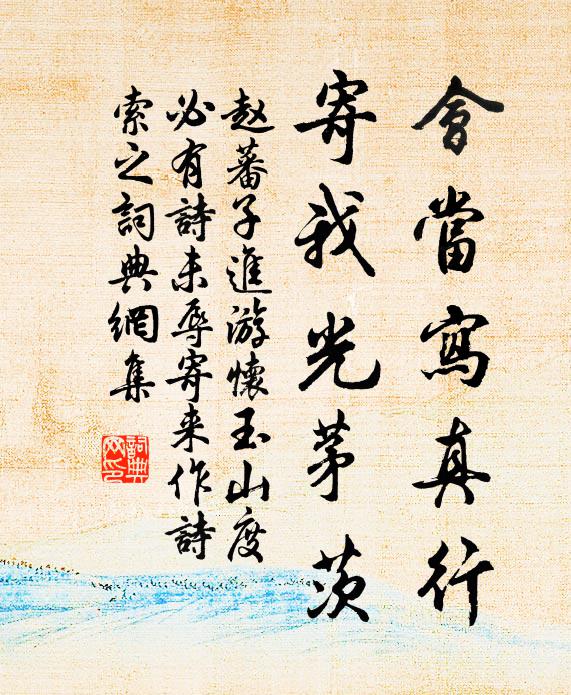 會當寫真行
寄我光茅茨
赵蕃子進游懷玉山度
必有詩未辱寄来作詩
索之詞典網集
詞典网印